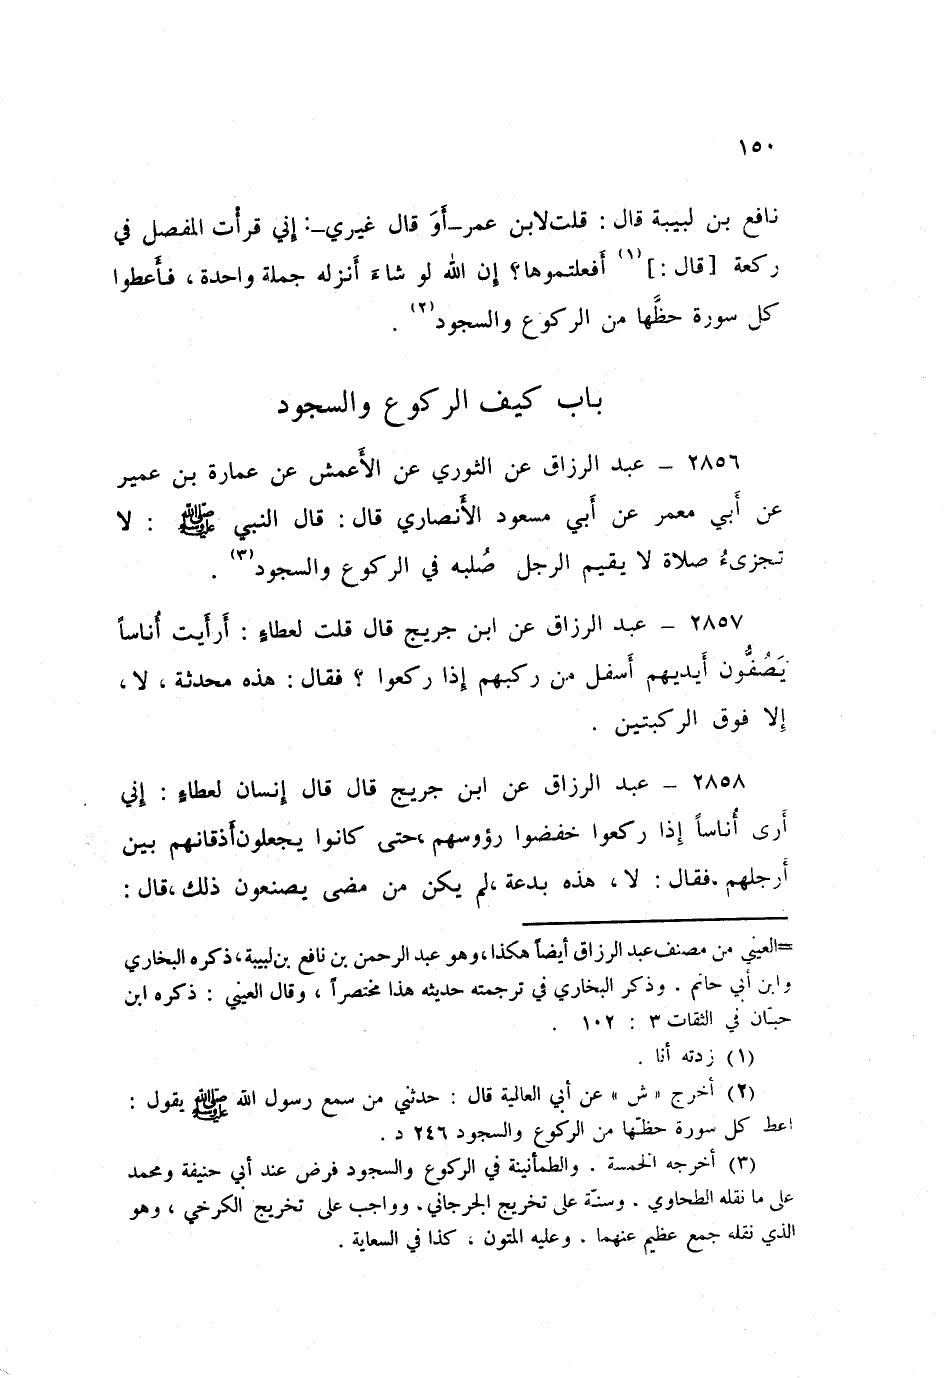 ١٥٠
نافع بن لبيبة قال : قلت لابن عمر ـ أَوَ قال غيري ـ : إني قرأْت المفصل في
ركعة [ قال : ] (١) أفعلتموها ؟ إن الله لو شاءَ أَنزله جملة واحدة ، فأَعطوا
كل سورة حظَّها من الركوع والسجود (٢) .
باب كيف الركوع والسجود
٢٨٥٦ ـ عبد الرزاق عن الثوري عن الأَعمش عن عمارة بن عمير
عن أَبي معمر عن أَبي مسعود الأَنصاري قال : قال النبي ﷺ : لا
تجزىءُ صلاة لا يقيم الرجل صُلبه في الركوع والسجود (٣) .
٢٨٥٧ ـ عبد الرزاق عن ابن جريج قال قلت لعطاءٍ : أَرأَيت أُناساً
يَصُفُّون أَيديهم أَسفل من ركبهم إِذا ركعوا ؟ فقال : هذه محدثة ، لا ،
إِلا فوق الركبتين .
٢٨٥٨ ـ عبد الرزاق عن ابن جريج قال قال إِنسان لعطاءٍ : إِني
أَرى أُناساً إِذا ركعوا خفضوا رؤوسهم ، حتى كانوا يجعلون أَذقانهم بين
أَرجلهم . فقال : لا ، هذه بدعة ، لم يكن من مضى يصنعون ذلك ، قال :
= العيني من مصنف عبد الرزاق أيضاً هكذا ، وهو عبد الرحمن بن نافع بن لبيبة ، ذكره البخاري
وابن أبي حاتم . وذكر البخاري في ترجمته حديثه هذا مختصراً ، وقال العيني : ذكره ابن
حبّان في الثقات ٣ : ١٠٢ .
(١) زدته أنا .
(٢) أخرج « ش » عن أبي العالية قال : حدثني من سمع رسول الله ﷺ يقول :
اعط كل سورة حظّها من الركوع والسجود ٢٤٦ د .
(٣) أخرجه الخمسة . والطمأنينة في الركوع والسجود فرض عند أبي حنيفة ومحمد
على ما نقله الطحاوي . وسنّة على تخريج الجرجاني . وواجب على تخريج الكرخي ، وهو
الذي نقله جمع عظيم عنهما . وعليه المتون ، كذا في السعاية .